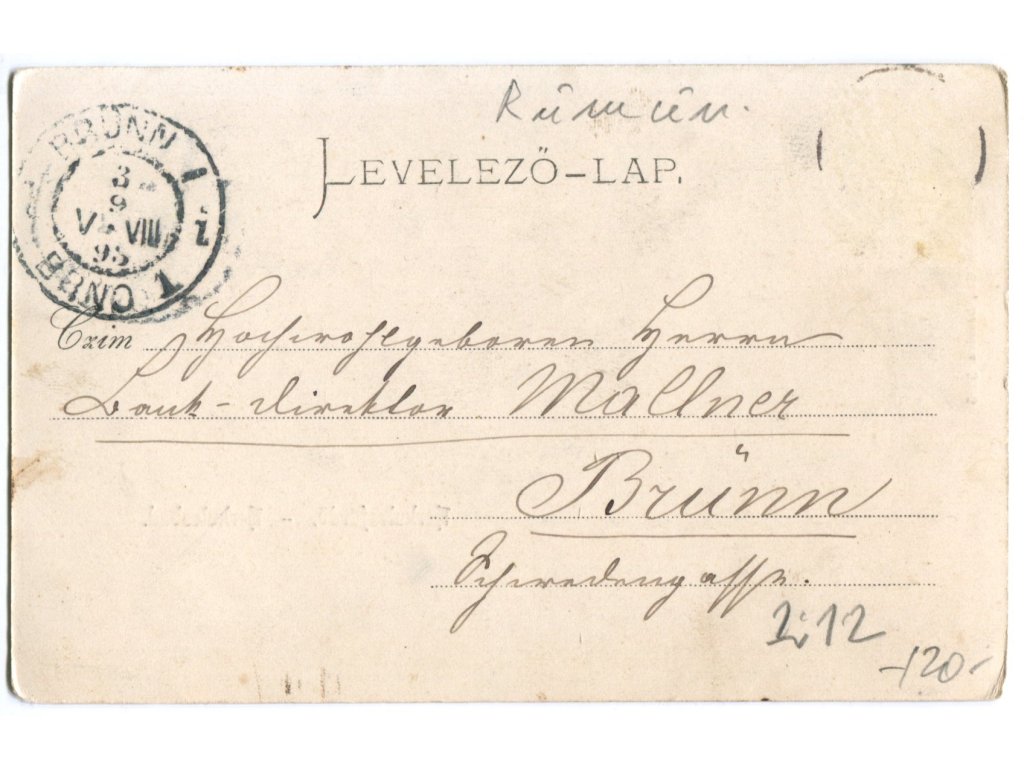 Rumun.
LEVELEZŐ-LAP.
BRÜNN 1
3
9
VIII
95
BRNO 1
Czim Hochwohlgeboren Herrn
Bank-Direktor Wallner
Brünn
Schwedengasse.
212
120-